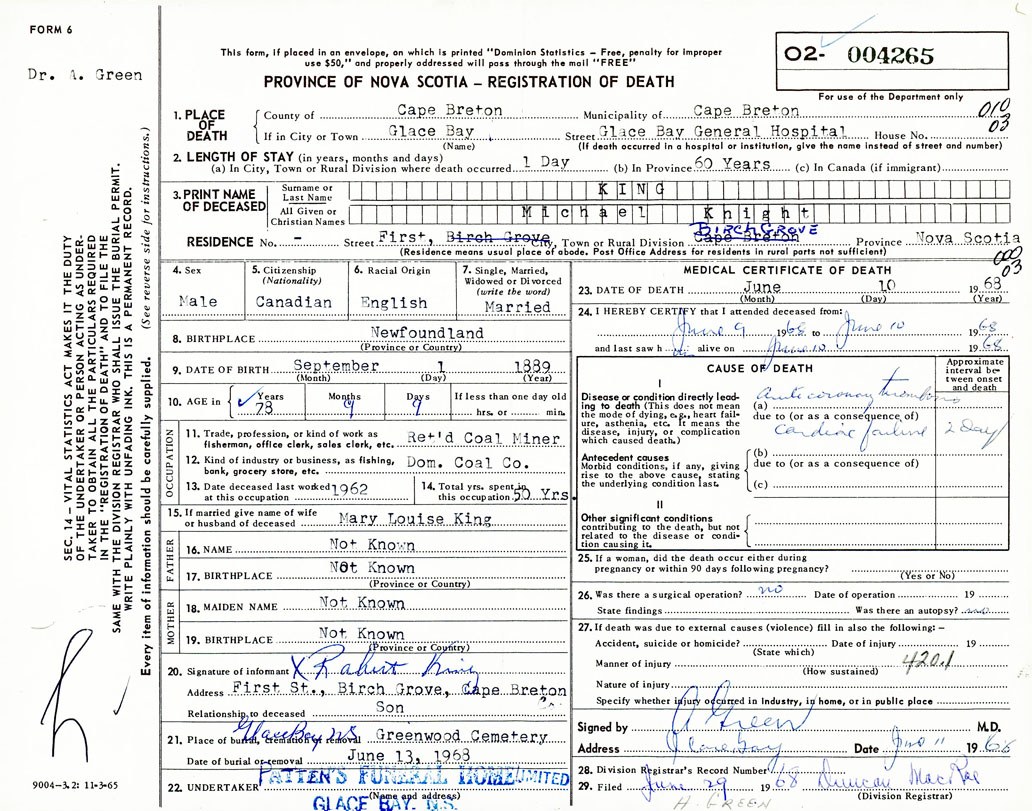 FORM 6
Dr. A. Green
This form, if placed in an envelope, on which is printed "Dominion Statistics – Free, penalty for improper
use $50," and properly addressed will pass through the mail "FREE"
02- 004265
For use of the Department only
PROVINCE OF NOVA SCOTIA – REGISTRATION OF DEATH
1. PLACE OF DEATH
County of Cape Breton Municipality of Cape Breton 010
If in City or Town Glace Bay Street Glace Bay General Hospital House No. 03
(Name) (If death occurred in a hospital or institution, give the name instead of street and number)
2. LENGTH OF STAY (in years, months and days)
(a) In City, Town or Rural Division where death occurred 1 Day (b) In Province 60 Years (c) In Canada (if immigrant)
3. PRINT NAME OF DECEASED
Surname or Last Name KING
All Given or Christian Names Michael Knight
RESIDENCE No. – Street First, Birch Grove City, Town or Rural Division Cape Breton BIRCH GROVE Province Nova Scotia
(Residence means usual place of abode. Post Office Address for residents in rural parts not sufficient)
000
03
4. Sex
Male
5. Citizenship
(Nationality)
Canadian
6. Racial Origin
English
7. Single, Married,
Widowed or Divorced
(write the word)
Married
8. BIRTHPLACE Newfoundland
(Province or Country)
9. DATE OF BIRTH September 1 1889
(Month) (Day) (Year)
10. AGE in Years 78 Months 9 Days 9 If less than one day old
hrs. or min.
OCCUPATION
11. Trade, profession, or kind of work as
fisherman, office clerk, sales clerk, etc. Ret'd Coal Miner
12. Kind of industry or business, as fishing,
bank, grocery store, etc. Dom. Coal Co.
13. Date deceased last worked
at this occupation 1962
14. Total yrs. spent in
this occupation 50 Yrs.
15. If married give name of wife
or husband of deceased Mary Louise King
FATHER
16. NAME Not Known
17. BIRTHPLACE Not Known
(Province or Country)
MOTHER
18. MAIDEN NAME Not Known
19. BIRTHPLACE Not Known
(Province or Country)
20. Signature of informant X Robert King
Address First St., Birch Grove, Cape Breton
Relationship to deceased Son
21. Place of burial, cremation or removal Glace Bay N.S. Greenwood Cemetery
Date of burial or removal June 13, 1968
22. UNDERTAKER PATTEN'S FUNERAL HOME LIMITED
(Name and address)
GLACE BAY, N.S.
MEDICAL CERTIFICATE OF DEATH
23. DATE OF DEATH June 10 1968
(Month) (Day) (Year)
24. I HEREBY CERTIFY that I attended deceased from:
June 9 1968 to June 10 1968
and last saw h im alive on June 10 1968
CAUSE OF DEATH
Approximate
interval be-
tween onset
and death
I
Disease or condition directly lead-
ing to death (This does not
mean the mode of dying, e.g., heart fail-
ure, asthenia, etc. It means the
disease, injury, or complication
which caused death.)
(a) Acute coronary thrombosis
due to (or as a consequence of)
cardiac failure 2 Days
Antecedent causes
Morbid conditions, if any, giving
rise to the above cause, stating
the underlying condition last.
(b)
due to (or as a consequence of)
(c)
II
Other significant conditions
contributing to the death, but not
related to the disease or condi-
tion causing it.
25. If a woman, did the death occur either during
pregnancy or within 90 days following pregnancy?
(Yes or No)
26. Was there a surgical operation? no Date of operation 19
State findings Was there an autopsy? no
27. If death was due to external causes (violence) fill in also the following: –
Accident, suicide or homicide? Date of injury 19
(State which)
Manner of injury 420.1
(How sustained)
Nature of injury
Specify whether injury occurred in Industry, in home, or in public place
Signed by A Green M.D.
Address Glace Bay Date June 11 1968
28. Division Registrar's Record Number
29. Filed June 29 1968 Duncan MacRae
(Division Registrar)
H. GREEN
SEC. 14 – VITAL STATISTICS ACT MAKES IT THE DUTY
OF THE UNDERTAKER OR PERSON ACTING AS UNDER-
TAKER TO OBTAIN ALL THE PARTICULARS REQUIRED
IN THE "REGISTRATION OF DEATH" AND TO FILE THE
SAME WITH THE DIVISION REGISTRAR WHO SHALL ISSUE THE BURIAL PERMIT.
WRITE PLAINLY WITH UNFADING INK. THIS IS A PERMANENT RECORD.
Every item of information should be carefully supplied. (See reverse side for instructions.)
9004-3.2: 11-3-65